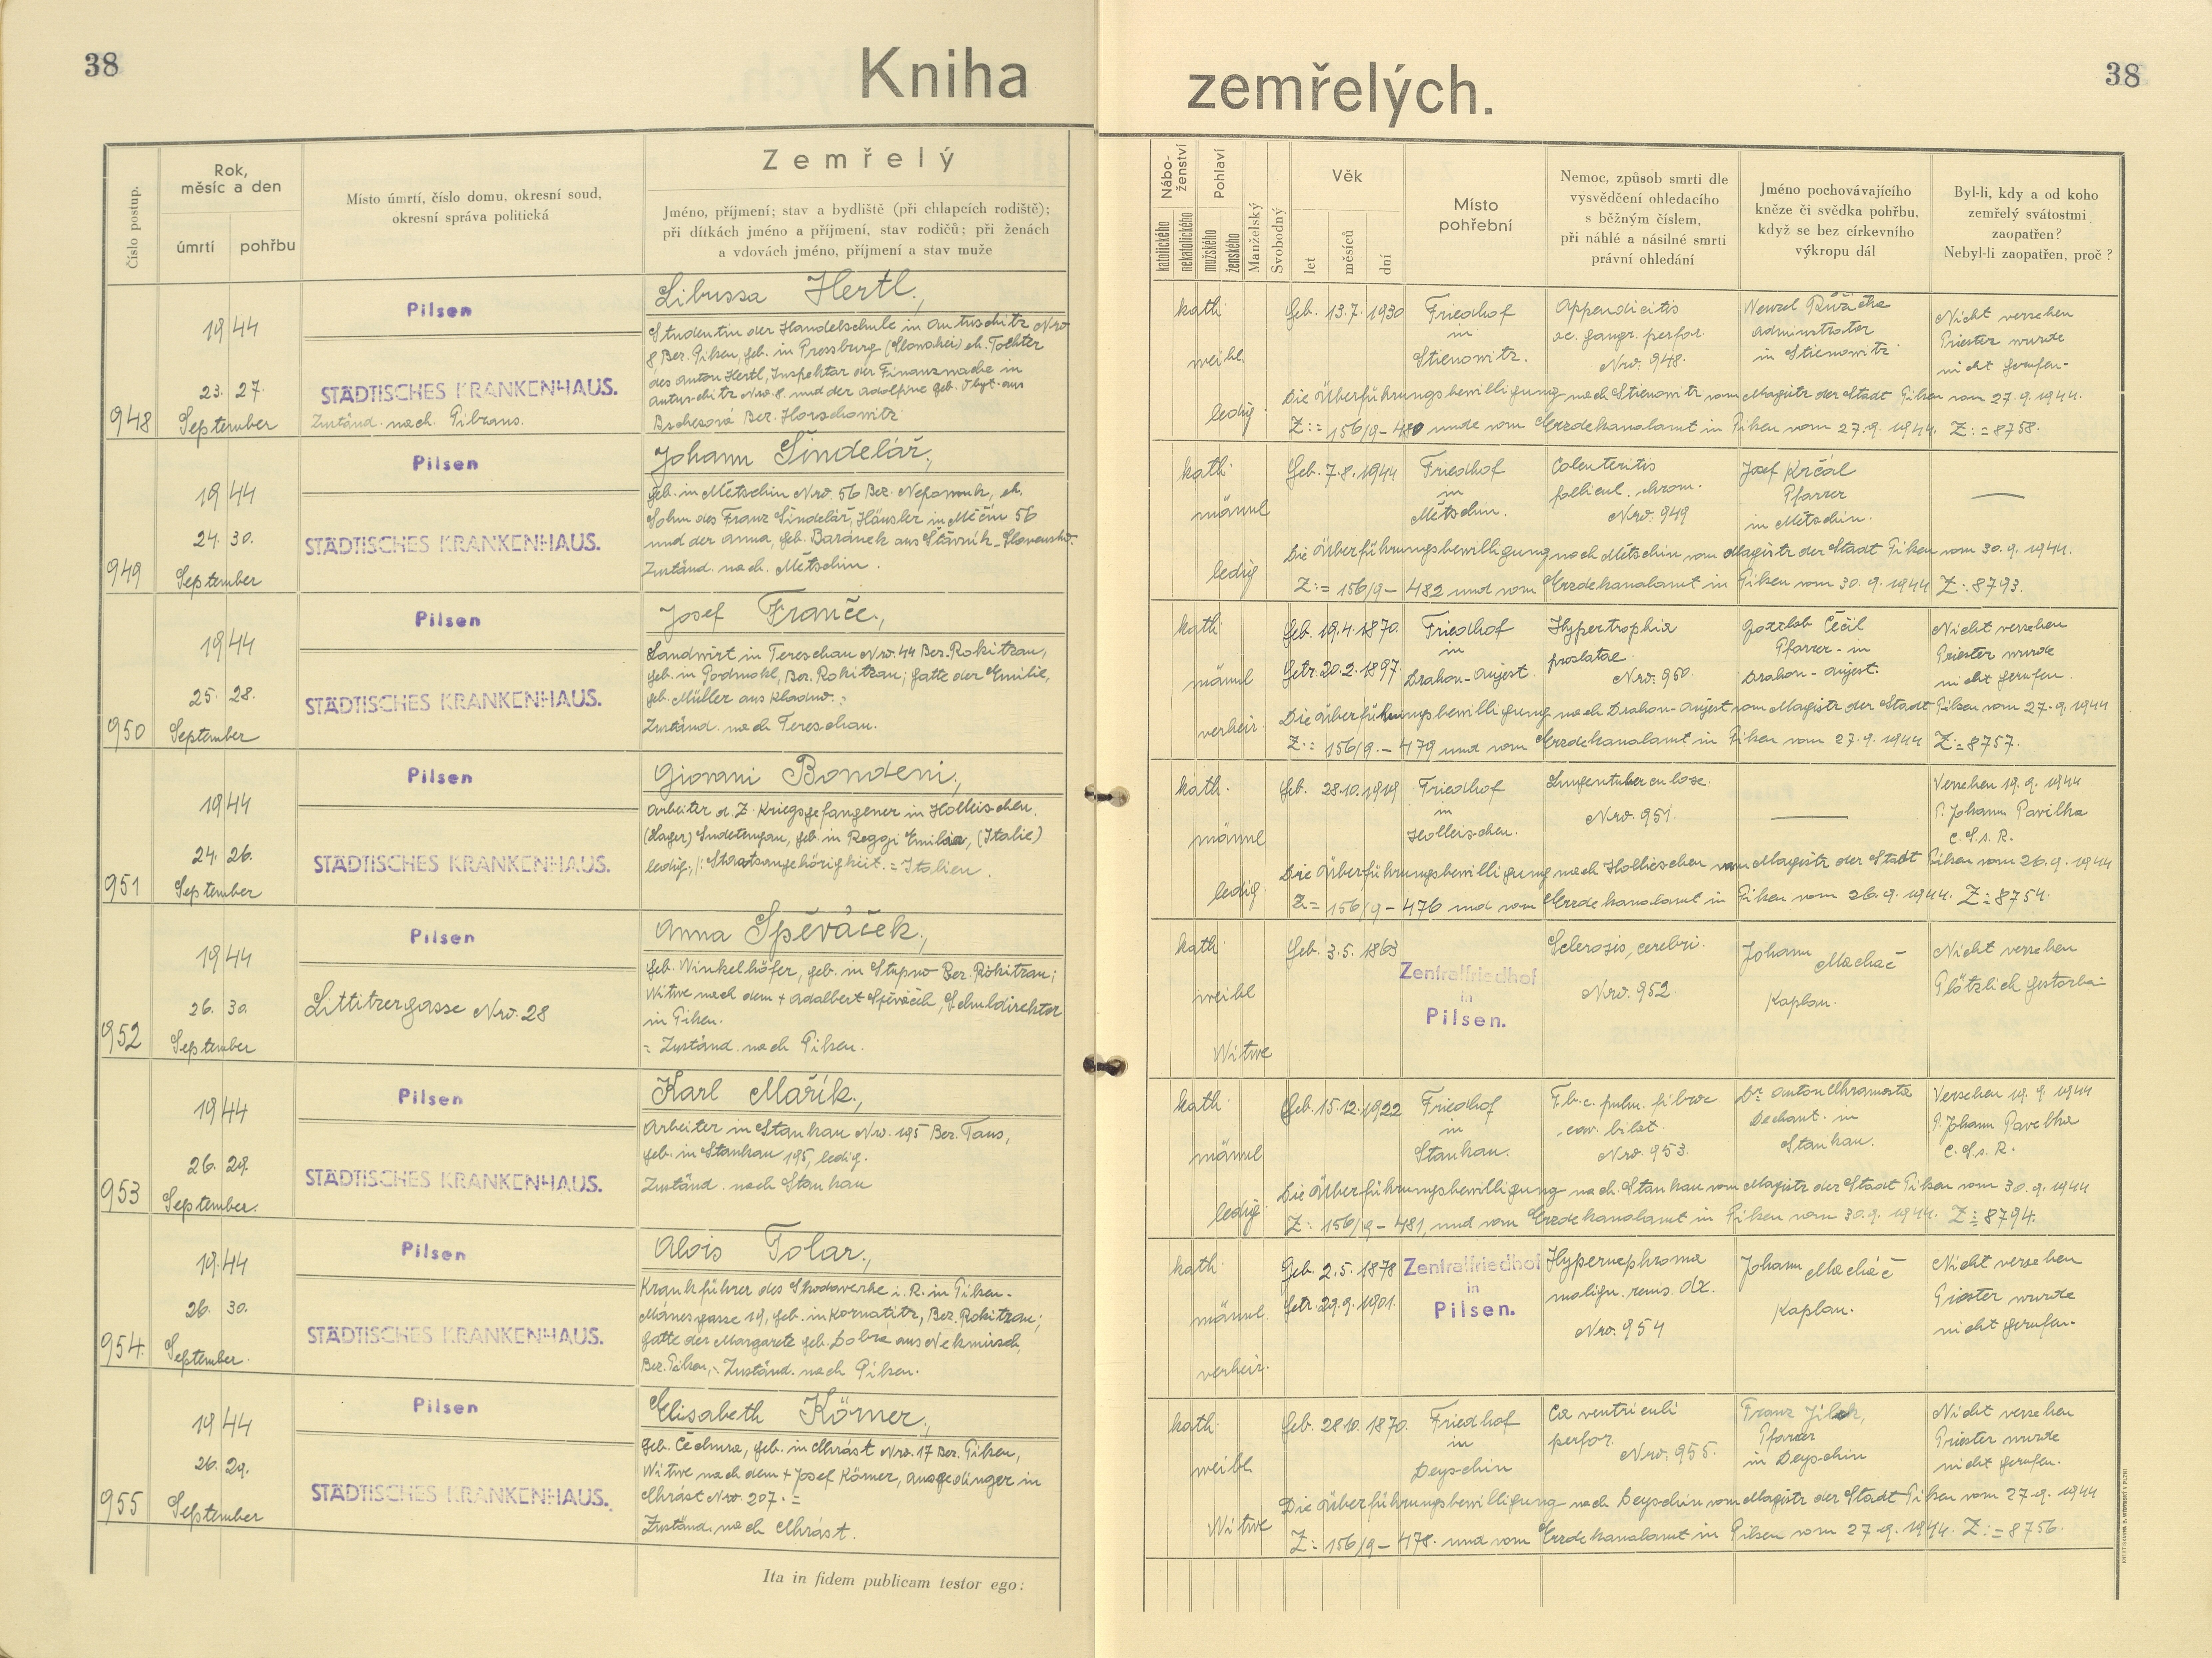 38
Kniha zemřelých.
38
Číslo postup.
Rok,
měsíc a den
úmrtí
pohřbu
Místo úmrtí, číslo domu, okresní soud,
okresní správa politická
Zemřelý
Jméno, příjmení; stav a bydliště (při chlapcích rodiště);
při dítkách jméno a příjmení, stav rodičů; při ženách
a vdovách jméno, příjmení a stav muže
Nábo-
ženství
katolického
nekatolického
Pohlaví
mužského
ženského
Manželský
Svobodný
Věk
let
měsíců
dní
Místo
pohřební
Nemoc, způsob smrti dle
vysvědčení ohledacího
s běžným číslem,
při náhlé a násilné smrti
právní ohledání
Jméno pochovávajícího
kněze či svědka pohřbu,
když se bez církevního
výkropu dál
Byl-li, kdy a od koho
zemřelý svátostmi
zaopatřen?
Nebyl-li zaopatřen, proč?
948
1944
23. 27.
September
Pilsen
STÄDTISCHES KRANKENHAUS.
Zuständ. nach. Pibrans.
Libussa Hertl.,
Studentin der Handelschule in Antuschitz Nro
8 Bez. Pilsen, geb. in Pressburg (Slowakei) eh. Tochter
des Anton Hertl, Inspektor der Finanzwache in
Antuschitz Nro. 8. und der Adolfine geb. aus
Bez. Horschowitz.
kath.
weibl.
ledig.
Geb. 13.7.1930
Friedhof
in
Stienowitz.
Appendicitis
ac. gangr. perfor.
Nro. 948.
Wenzel Růžička
Administrator
in Stienowitz.
Nicht versehen
Priester wurde
nicht gerufen.
Die Überführungsbewilligung nach Stienowitz vom Magistr der Stadt Pilsen vom 27.9.1944.
Z:= 156/9-480 und vom Erzdekanalamt in Pilsen vom 27.9.1944. Z:=8758.
949
1944
24. 30.
September
Pilsen
STÄDTISCHES KRANKENHAUS.
Johann Šindelář.,
geb. in Mětschin Nro. 56 Bez. Nepomuk, eh.
Sohn des Franz Šindelář, Häusler in Měčín 56
und der Anna, geb. Baranek aus
Zuständ. nach. Mětschin.
kath.
männl
ledig
Geb. 7.8.1944
Friedhof
in
Mětschin.
Colenteritis
follicul. chron.
Nro. 949
Josef Krčál
Pfarrer
in Mětschin.
—
Die Überführungsbewilligung nach Mětschin vom Magistr der Stadt Pilsen vom 30.9.1944.
Z:= 156/9-482 und vom Erzdekanalamt in Pilsen vom 30.9.1944 Z:8793.
950
1944
25. 28.
September
Pilsen
STÄDTISCHES KRANKENHAUS.
Josef Franče.,
Landwirt in Tereschau Nro. 44 Bez. Rokitzan,
geb. in Podmokl, Bez. Rokitzan; Gatte der Emilie,
geb. Müller aus Kladno.:
Zuständ. nach Tereschau.
kath.
männl
verheir.
Geb. 19.4.1870.
Getr. 20.2.1897.
Friedhof
in
Drahon-Aujest.
Hypertrophia
prostatae.
Nro. 950.
Gottlob Čečil
Pfarrer in
Drahon-Aujest.
Nicht versehen
Priester wurde
nicht gerufen.
Die Überführungsbewilligung nach Drahon-Aujest vom Magistr der Stadt Pilsen vom 27.9.1944
Z:= 156/9.-479 und vom Erzdekanalamt in Pilsen vom 27.9.1944 Z:=8757.
951
1944
24. 26.
September
Pilsen
STÄDTISCHES KRANKENHAUS.
Giovani Bondeni.,
Arbeiter d. Z. Kriegsgefangener in Holleischen.
(Lager) Sudetengau, geb. in Reggi Emilia, (Italie)
ledig, /: Staatsangehörigkeit.= Italien.
kath.
männl
ledig
Geb. 28.10.1919
Friedhof
in
Holleischen.
Lungentuberculose.
Nro. 951.
—
Versehen 19.9.1944
P. Johann Pavelka
C.S.s.R.
Die Überführungsbewilligung nach Holleischen vom Magistr der Stadt Pilsen vom 26.9.1944
Z= 156/9-476 und vom Erzdekanalamt in Pilsen vom 26.9.1944. Z:=8754.
952
1944
26. 30.
September
Pilsen
Littitzergasse Nro. 28
Anna Spěváček.,
geb. Winkelhöfer, geb. in Stupno Bez. Rokitzan;
Witwe nach dem + Adalbert Spěváček, Schuldirektor
in Pilsen.
= Zuständ. nach Pilsen.
kath
weibl
Witwe
Geb. 3.5.1863
Zentralfriedhof
in
Pilsen.
Sclerosis, cerebri.
Nro. 952.
Johann Machač
Kaplan.
Nicht versehen
Plötzlich gestorben
953
1944
26. 29.
September.
Pilsen
STÄDTISCHES KRANKENHAUS.
Karl Mařík.,
Arbeiter in Stankau Nro. 195 Bez. Taus,
geb. in Stankau 195, ledig.
Zuständ. nach Stankau
kath.
männl
ledig.
Geb. 15.12.1922
Friedhof
in
Stankau.
T.b.c. pulm. fibroc
cav. bilat.
Nro. 953.
Dr. Anton Chramosta
Dechant. in
Stankau.
Versehen 19.9.1944
P. Johann Pavelka
C.S.s.R.
Die Überführungsbewilligung nach. Stankau vom Magistr der Stadt Pilsen vom 30.9.1944
Z: 156/9-481, und vom Erzdekanalamt in Pilsen vom 30.9.1944. Z:=8794.
954.
1944
26. 30.
September.
Pilsen
STÄDTISCHES KRANKENHAUS.
Alois Tolar.,
Krankführer des Skodawerke i. R. in Pilsen-
Mánesgasse 19, geb. in Kornatitz, Bez. Rokitzan;
Gatte der Margarete geb. Dobra aus Nekmirsch,
Bez. Pilsen,: Zuständ. nach Pilsen.
kath.
männl.
verheir.
Geb. 2.5.1878
Getr. 29.9.1901.
Zentralfriedhof
in
Pilsen.
Hypernephroma
malign. renis. dx.
Nro. 954
Johann Macháč
Kaplan.
Nicht versehen
Priester wurde
nicht gerufen.
955
1944
26. 29.
September
Pilsen
STÄDTISCHES KRANKENHAUS.
Elisabeth Körner.,
geb. Čechura, geb. in Chrást Nro. 17 Bez. Pilsen,
Witwe nach dem + Josef Körner, Ausgedinger in
Chrást Nro. 207.=
Zuständ. nach Chrást.
kath.
weibl
Witwe
Geb. 28.10.1870.
Friedhof
in
Deyschin
Ca ventriculi
perfor.
Nro. 955.
Franz
Pfarrer
in Deyschin
Nicht versehen
Priester wurde
nicht gerufen.
Die Überführungsbewilligung nach Deyschin vom Magistr der Stadt Pilsen vom 27.9.1944
Z:= 156/9-478. und vom Erzdekanalamt in Pilsen vom 27.9.1944. Z:=8756.
Ita in fidem publicam testor ego: